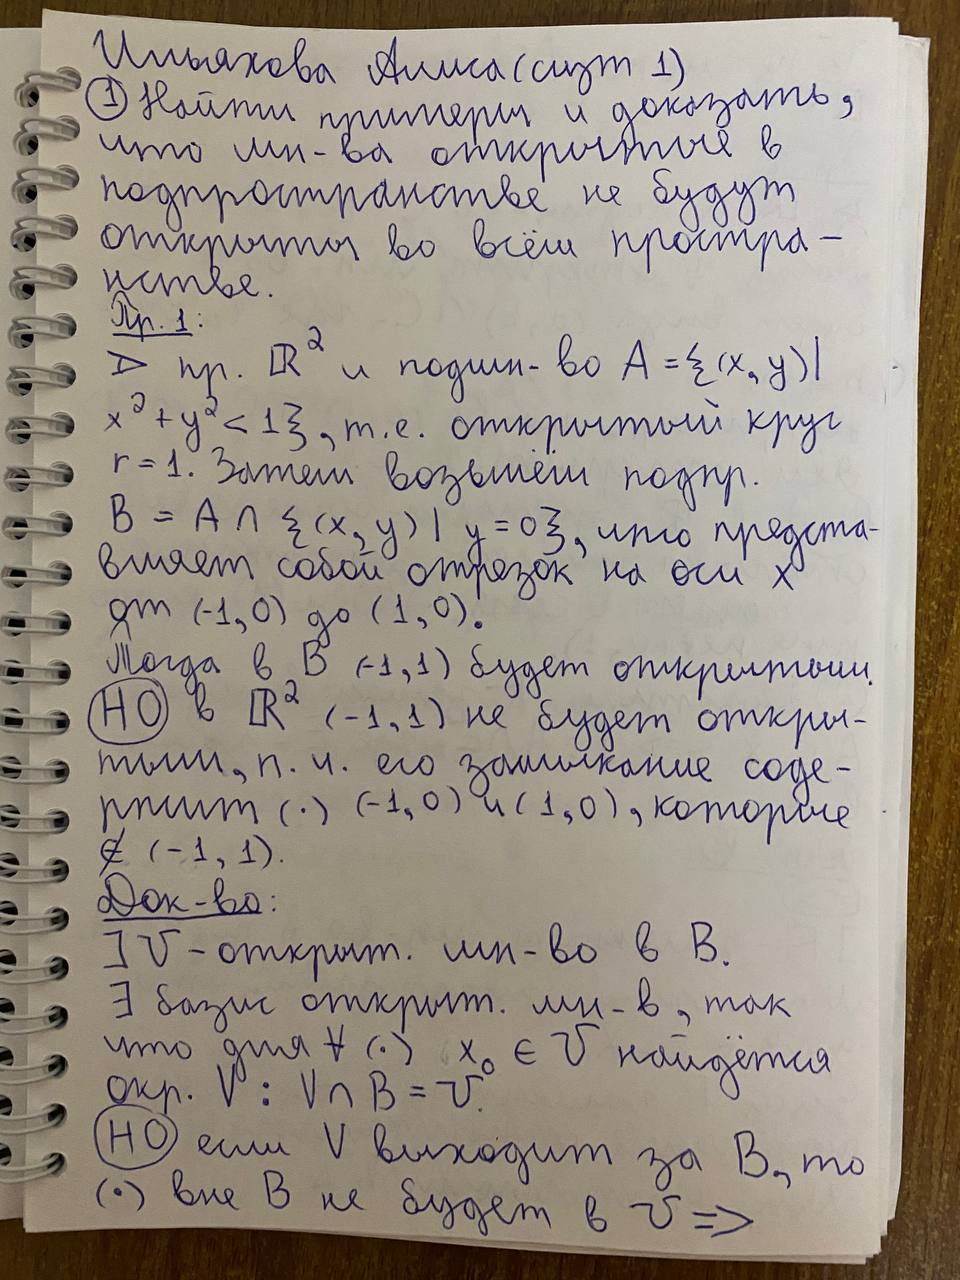 Ильяхова Алиса (лист 1)
① Найти примеры и доказать,
что мн-ва открытые в
подпространстве не будут
открыты во всём простра-
нстве.
Пр. 1:
▷ пр. ℝ² и подмн-во A = {(x, y) |
x² + y² < 1}, т.е. открытый круг
r = 1. Затем возьмём подпр.
B = A ∩ {(x, y) | y = 0}, что предста-
вляет собой отрезок на оси x
от (-1, 0) до (1, 0).
Тогда в B (-1, 1) будет открытым.
НО в ℝ² (-1, 1) не будет откры-
тым, п. ч. его замыкание соде-
ржит (·) (-1, 0) и (1, 0), которые
∉ (-1, 1).
Док-во:
] U - открыт. мн-во в B.
∃ базис открыт. мн-в, так
что для ∀ (·) x₀ ∈ U найдётся
окр. V : V ∩ B = U.
НО если V выходит за B, то
(·) вне B не будет в U ⇒